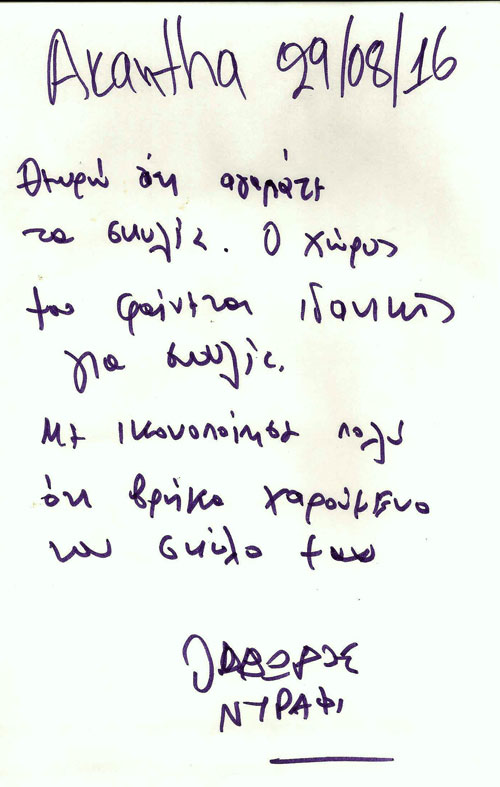 Akantha 29/08/16
Θεωρώ ότι αγαπάτε
τα σκυλιά. Ο χώρος
μου φαίνεται ιδανικός
για σκυλιά.
Με ικανοποίησε πολύ
ότι βρήκα χαρούμενο
τον σκύλο μου
ΝΥΡΑΦΙ